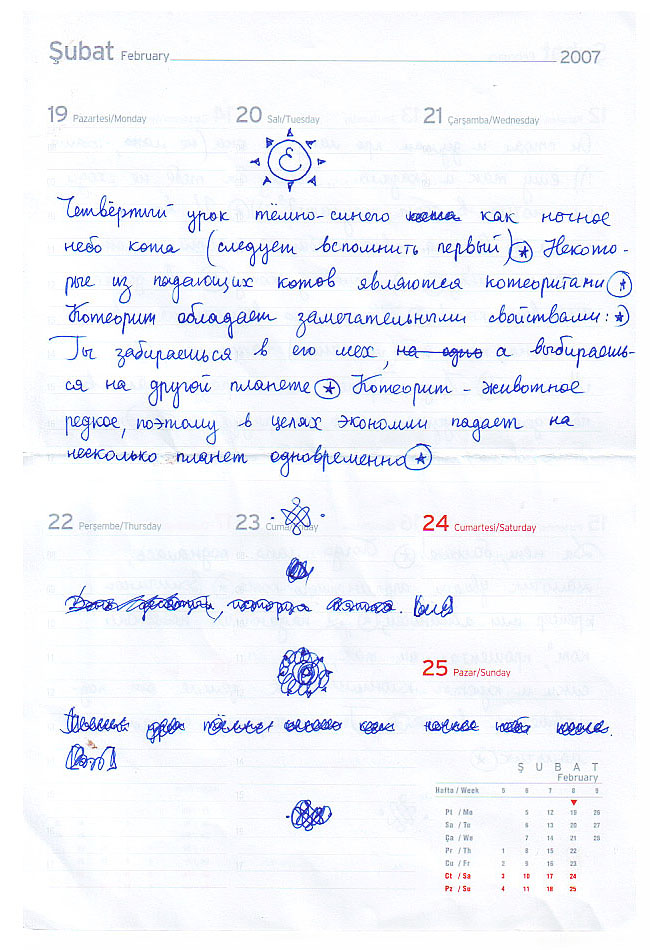 Şubat February 2007
19 Pazartesi/Monday 20 Salı/Tuesday 21 Çarşamba/Wednesday
Четвёртый урок тёмно-синего кота как ночное
небо кота (следует вспомнить первый) Некото-
рые из падающих котов являются котеоритами
Котеорит обладает замечательными свойствами:
Ты забираешься в его мех, на одно а выбираешь-
ся на другой планете Котеорит - животное
редкое, поэтому в целях экономии падает на
несколько планет одновременно
22 Perşembe/Thursday 23 24 Cumartesi/Saturday
которая
25 Pazar/Sunday
ŞUBAT
February
Hafta / Week 5 6 7 8 9
Pt / Mo 5 12 19 26
Sa / Tu 6 13 20 27
Ça / We 7 14 21 28
Pr / Th 1 8 15 22
Cu / Fr 2 9 16 23
Ct / Sa 3 10 17 24
Pz / Su 4 11 18 25